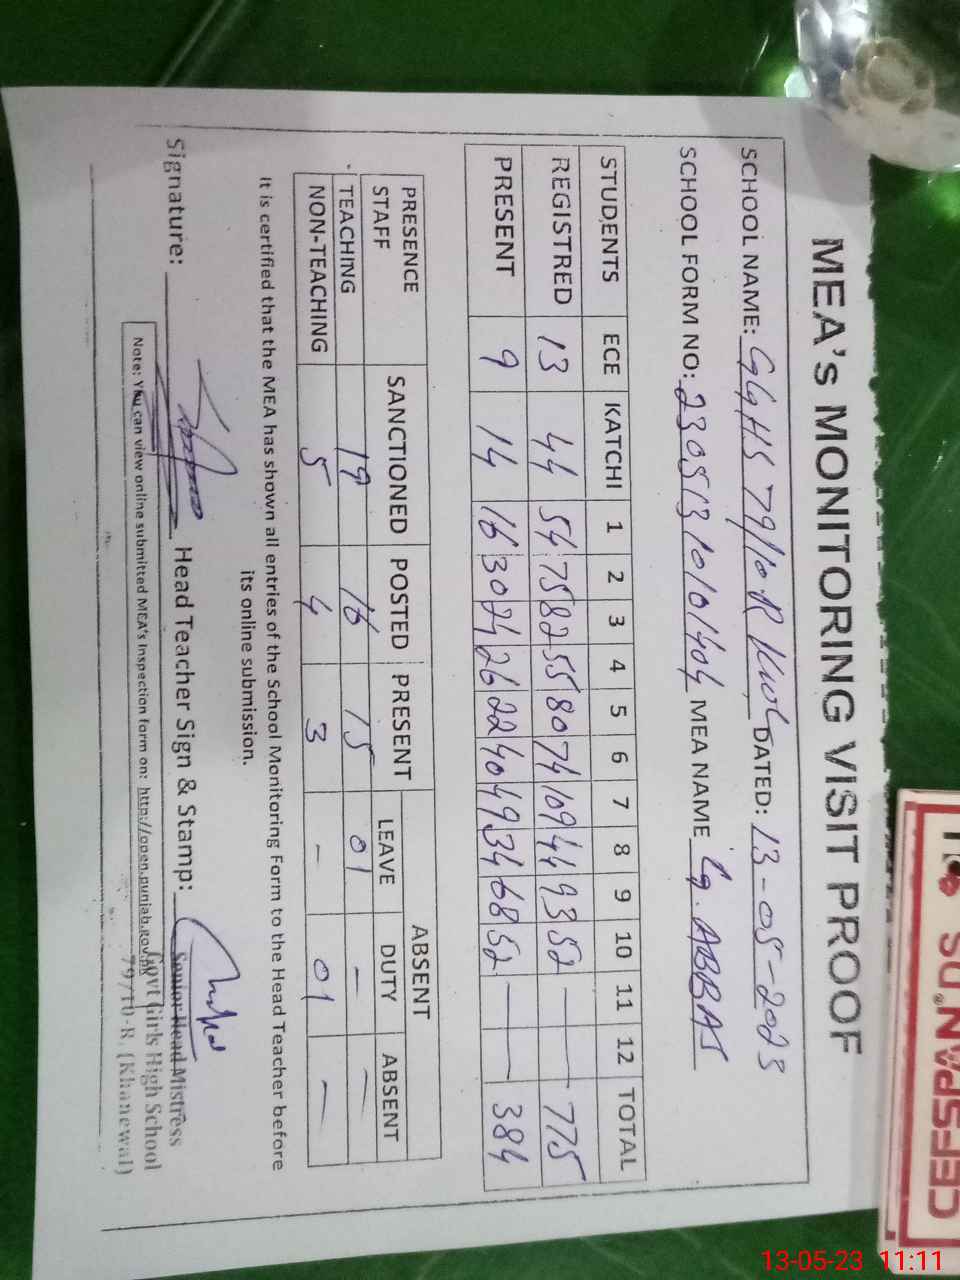 MEA's MONITORING VISIT PROOF
SCHOOL NAME: GGHS 79/10R KWL DATED: 13-05-2023
SCHOOL FORM NO: MEA NAME G. ABBAS
STUDENTS ECE KATCHI 1 2 3 4 5 6 7 8 9 10 11 12 TOTAL
REGISTRED 13 44 54 75 82 55 80 74 109 44 93 52 — — 775
PRESENT 9 14 16 30 24 26 22 40 49 34 68 52 — — 384
PRESENCE STAFF SANCTIONED POSTED PRESENT ABSENT
LEAVE DUTY ABSENT
TEACHING 19 16 15 01 — —
NON-TEACHING 5 4 3 — 01 —
It is certified that the MEA has shown all entries of the School Monitoring Form to the Head Teacher before
its online submission.
Signature: Head Teacher Sign & Stamp:
Senior Head Mistress
Govt Girls High School
79/10-R, (Khanewal)
Note: You can view online submitted MEA's Inspection form on: http://open.punjab.gov.pk
CEFSPAN
13-05-23 11:11